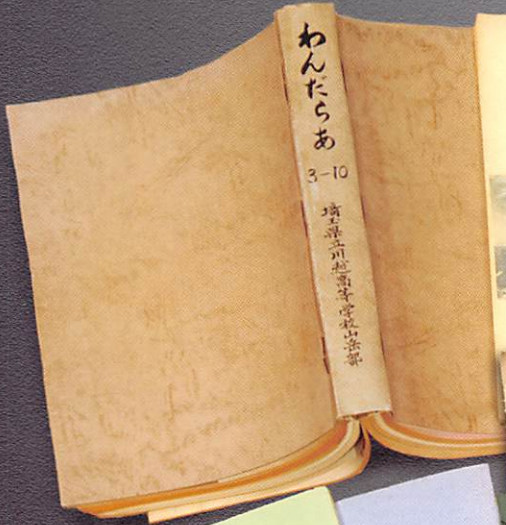 わんだらあ
3-10
埼玉県立川越高等学校山岳部